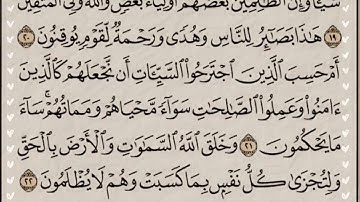 شَيْـًٔا وَإِنَّ ٱلظَّـٰلِمِينَ بَعْضُهُمْ أَوْلِيَآءُ بَعْضٍ وَٱللَّهُ وَلِىُّ ٱلْمُتَّقِينَ
١٩ هَـٰذَا بَصَـٰٓئِرُ لِلنَّاسِ وَهُدًى وَرَحْمَةٌ لِّقَوْمٍ يُوقِنُونَ ٢٠
أَمْ حَسِبَ ٱلَّذِينَ ٱجْتَرَحُوا۟ ٱلسَّيِّـَٔاتِ أَن نَّجْعَلَهُمْ كَٱلَّذِينَ
ءَامَنُوا۟ وَعَمِلُوا۟ ٱلصَّـٰلِحَـٰتِ سَوَآءً مَّحْيَاهُمْ وَمَمَاتُهُمْ ۚ سَآءَ
مَا يَحْكُمُونَ ٢١ وَخَلَقَ ٱللَّهُ ٱلسَّمَـٰوَٰتِ وَٱلْأَرْضَ بِٱلْحَقِّ
وَلِتُجْزَىٰ كُلُّ نَفْسٍۭ بِمَا كَسَبَتْ وَهُمْ لَا يُظْلَمُونَ ٢٢